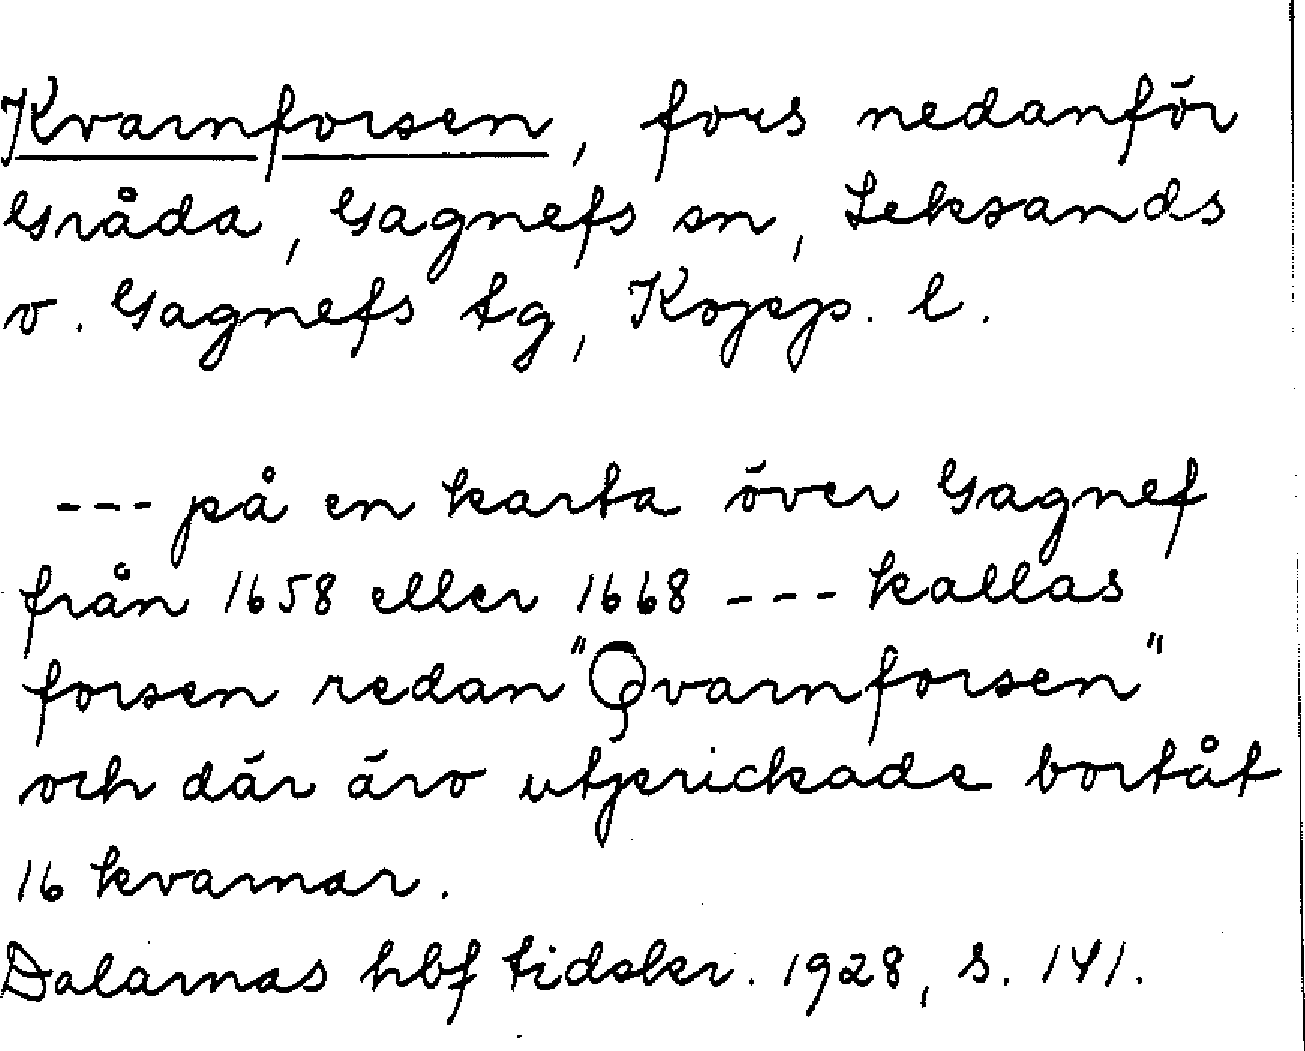 Kvarnforsen, fors nedanför
Gråda, Gagnefs sn, Leksands
o. Gagnefs tg, Kopp. l.
--- på en karta över Gagnef
från 1658 eller 1668 --- kallas
forsen redan "Qvarnforsen"
och där äro utprickade bortåt
16 kvarnar.
Dalarnas hbf tidskr. 1928, s. 141.